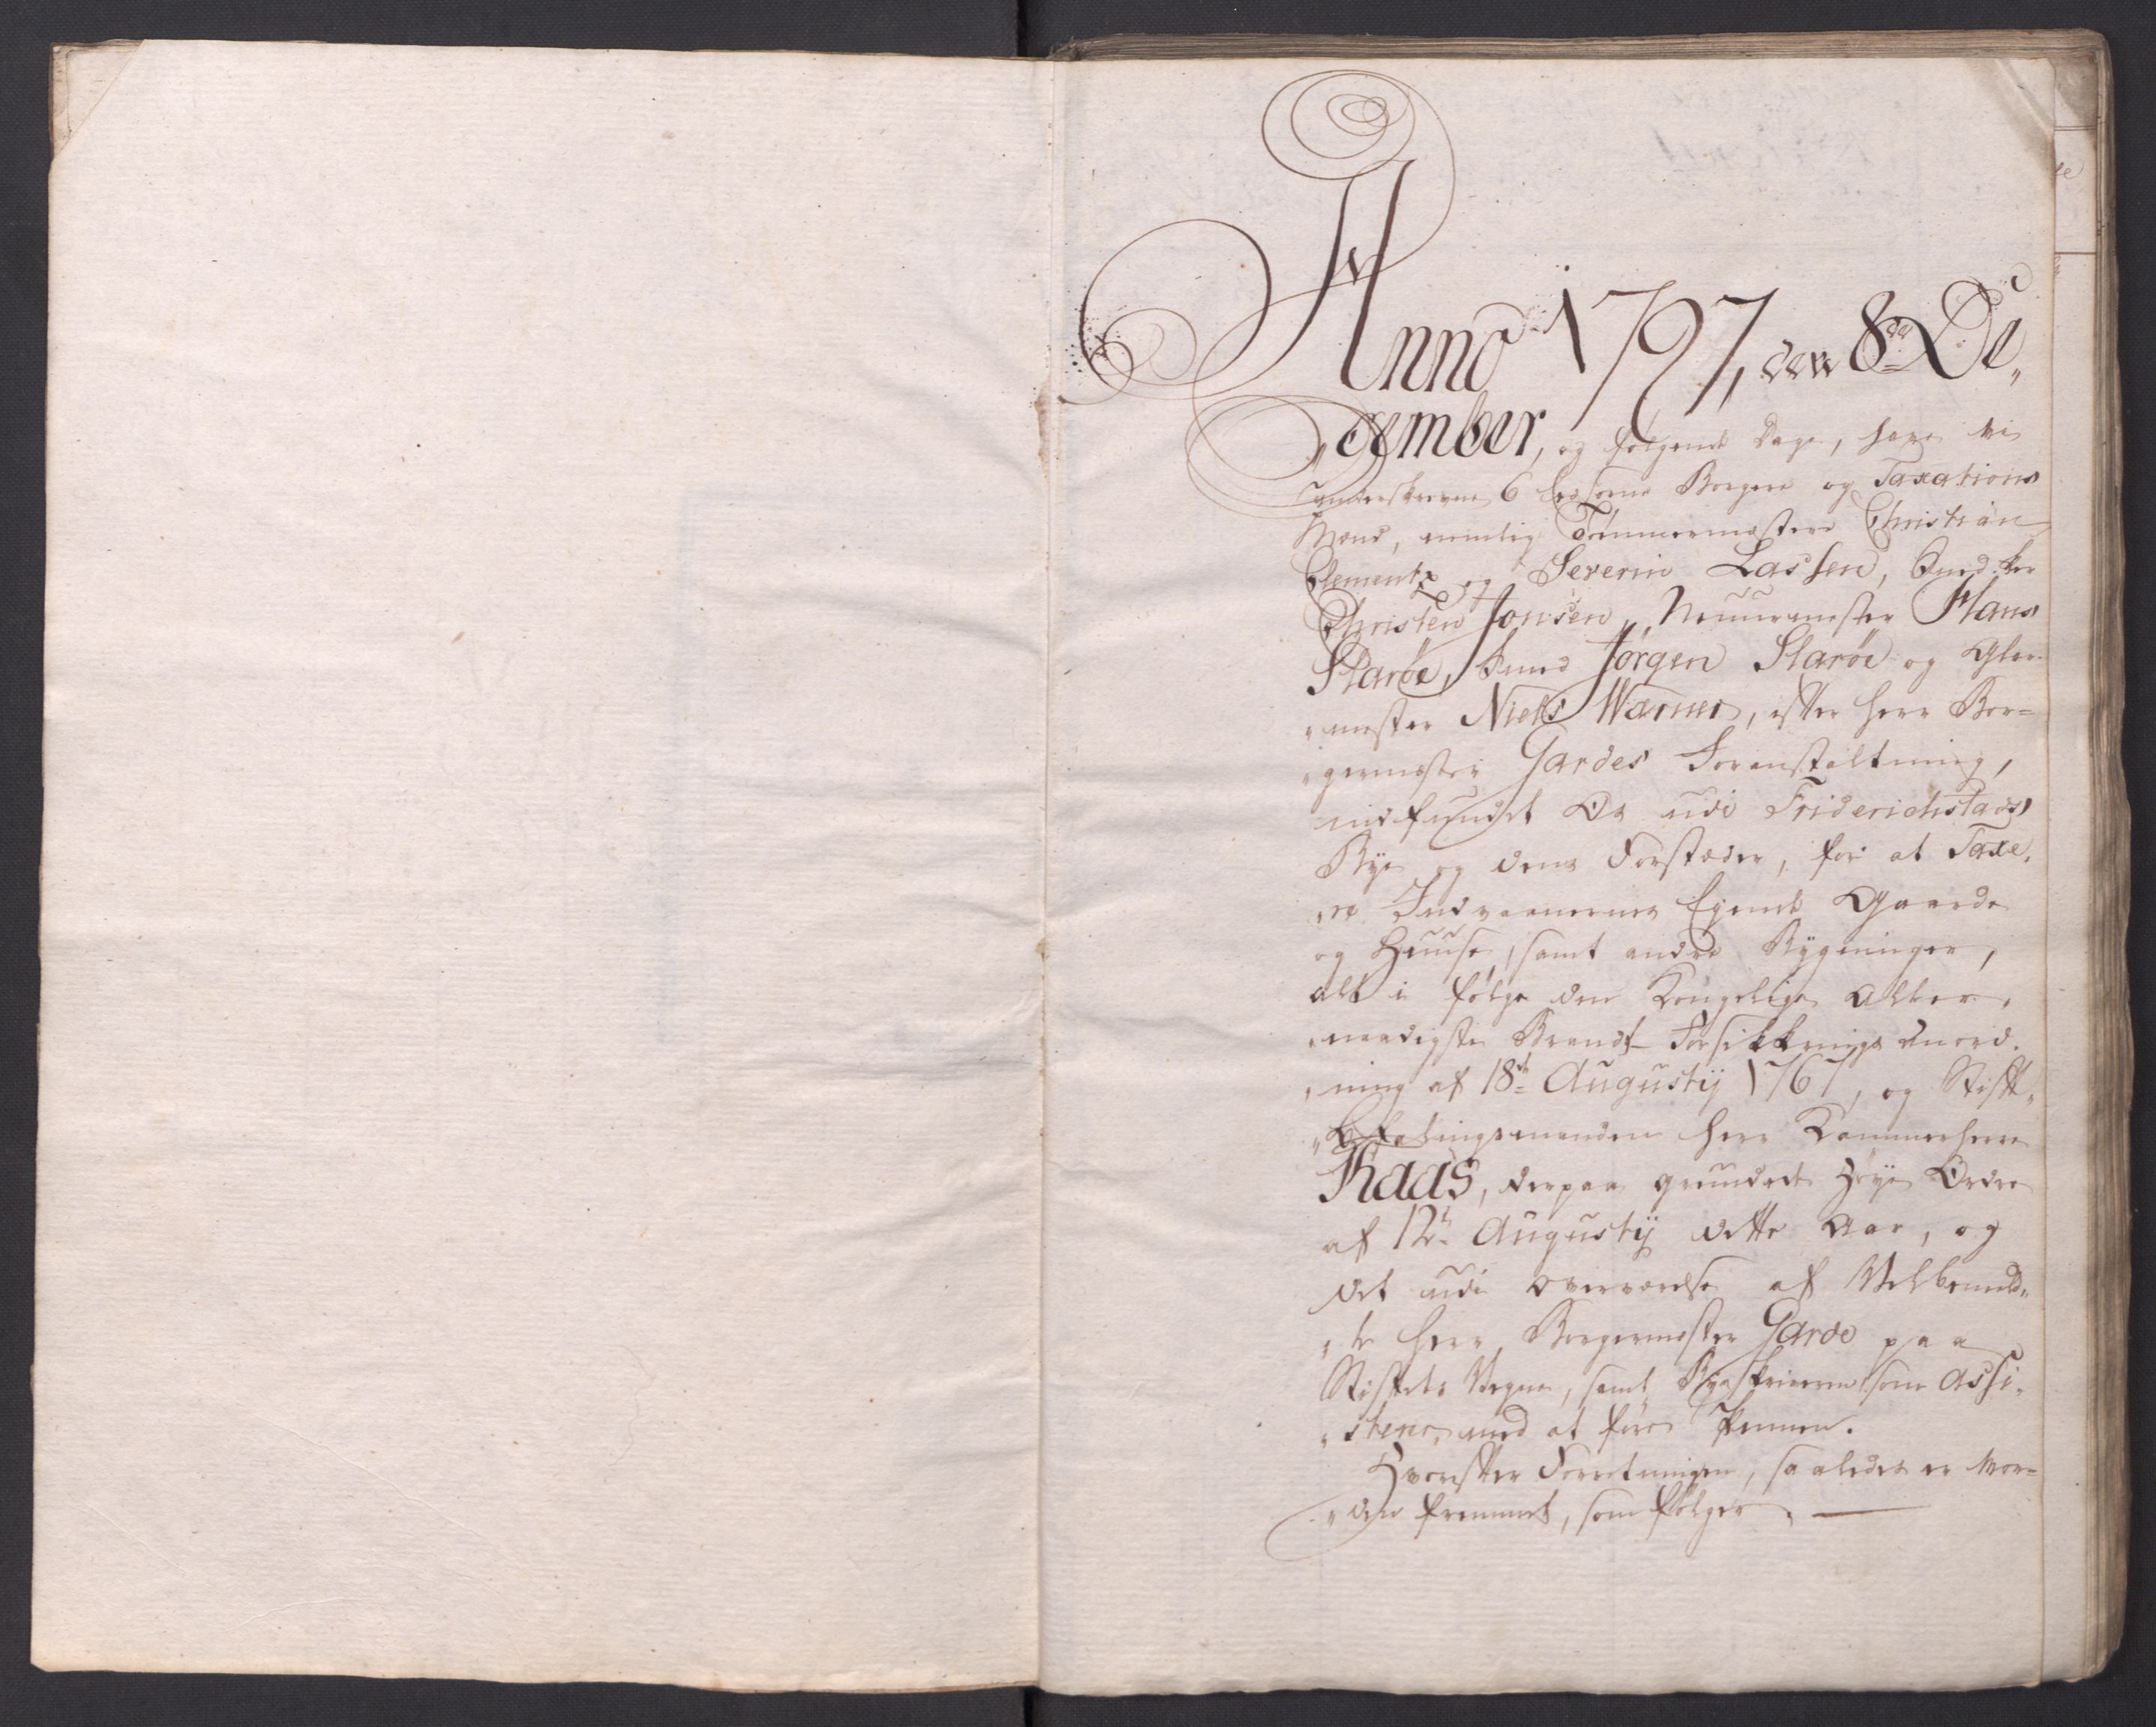 Anno 1797, den 8de De„
„cember, og følgende Dage, have vi
underskrevne 6 Eedsorne Borgere og Taxations
Mænd, nemlig Tømmermestere Christian
Clementz og Severin Lassen, Snedker
Christen Jonsen, Muurmester Hans
Slarøe, Smed Jørgen Slarøe og Glar„
„mester Niels Wærner, efter Herr Bor=
„germester Gardes Foranstaltning,
indfundet Os udi Friderichstads
Bye og dens Forstæder, for at Taxe„
„re Indvaanernes Eyende Gaarde
og Huuse, samt andre Bygninger,
alt i følge den Kongelige Aller„
„naadigste Brandt-Forsikkrings Anord„
„ning af 18de Augustij 1767, og Stift„
„Befalingsmanden Herr Kammerherre
Kaas, derpaa grundede Høye Ordre
af 12te Augustij dette Aar, og
det udi Overværelse af Velbemeld„
„te Herr Borgermester Garde paa
Stiftets Vegne, samt Byeskriveren som Assi„
„stence med at føre Pennen.
Hvorefter Forretningen, saaledes er vor=
„den fremmet, som følger. —